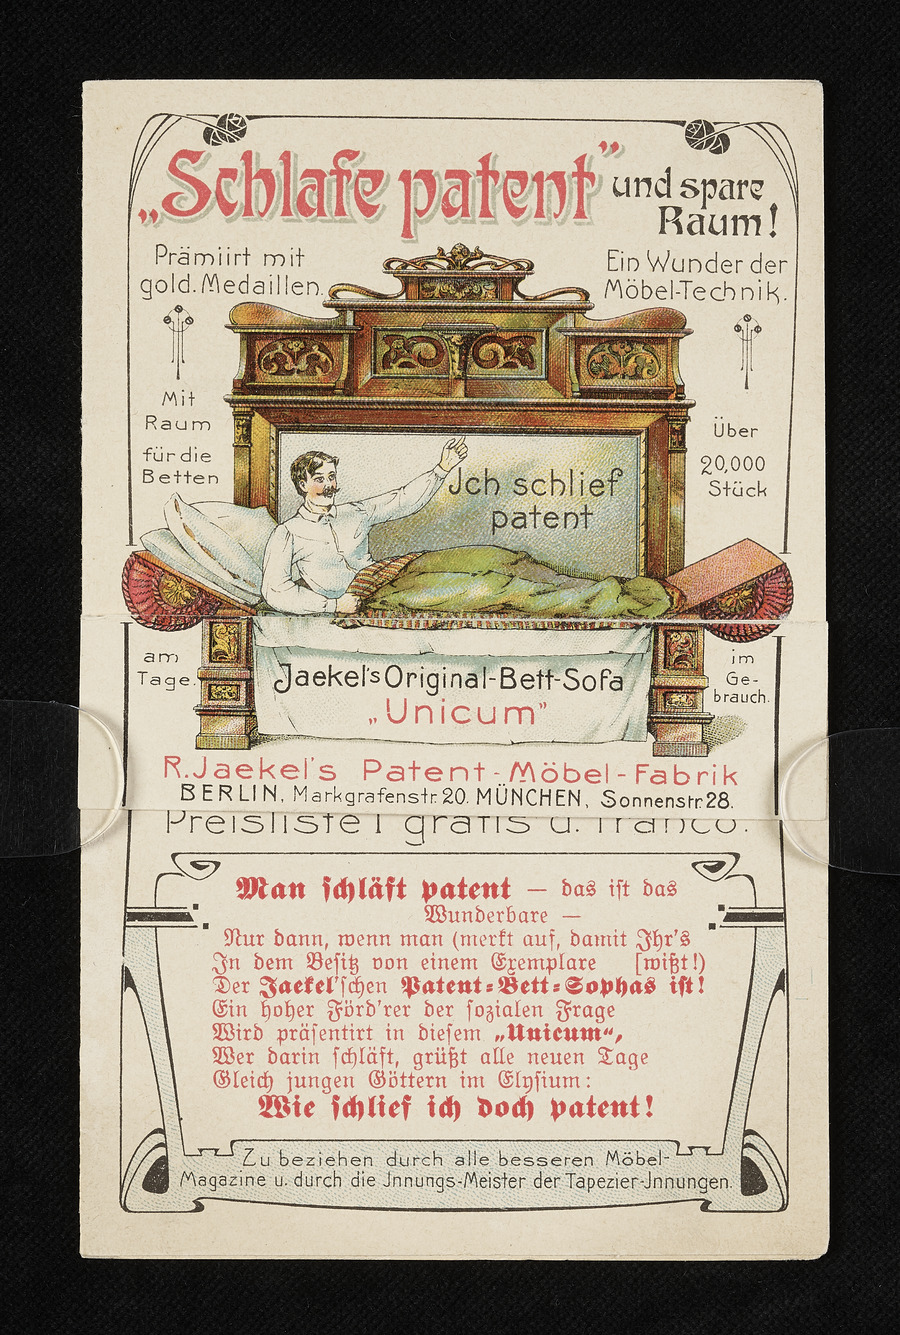 „Schlafe patent” und spare
Raum!
Prämiirt mit
gold. Medaillen.
Ein Wunder der
Möbel-Technik.
Mit
Raum
für die
Betten
Über
20,000
Stück
Jch schlief
patent
am
Tage.
im
Ge-
brauch.
Jaekel's Original-Bett-Sofa
„Unicum”
R. Jaekel's Patent-Möbel-Fabrik
BERLIN, Markgrafenstr. 20. MÜNCHEN, Sonnenstr. 28.
Preisliste I gratis u. franco.
Man schläft patent — das ist das
Wunderbare —
Nur dann, wenn man (merkt auf, damit Ihr's
In dem Besitz von einem Exemplare [wißt!)
Der Jaekel'schen Patent-Bett-Sophas ist!
Ein hoher Förd'rer der sozialen Frage
Wird präsentirt in diesem „Unicum“,
Wer darin schläft, grüßt alle neuen Tage
Gleich jungen Göttern im Elysium:
Wie schlief ich doch patent!
Zu beziehen durch alle besseren Möbel-
Magazine u. durch die Jnnungs-Meister der Tapezier-Jnnungen.